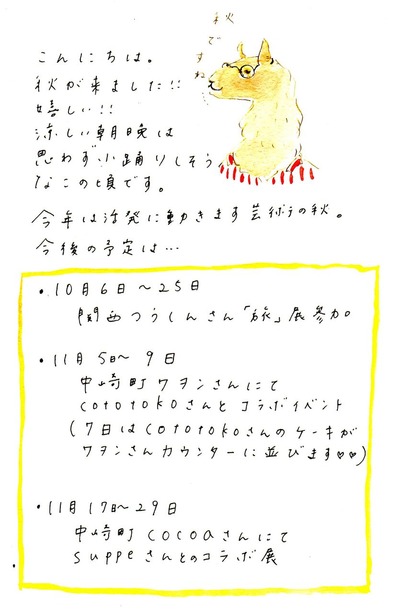 秋ですね
こんにちは。
秋が来ました!!
嬉しい!!
涼しい朝晩は
思わず、小踊りしそう
なこの頃です。
今年は活発に動きます芸術の秋。
今後の予定は…
・10月6日〜25日
関西つうしんさん「旅」展参加。
・11月5日〜9日
中崎町ワヲンさんにて
cototokoさんとコラボイベント
(7日はcototokoさんのケーキが
ワヲンさんカウンターに並びます♡♡)
・11月17日〜29日
中崎町cocoaさんにて
suppeさんとのコラボ展